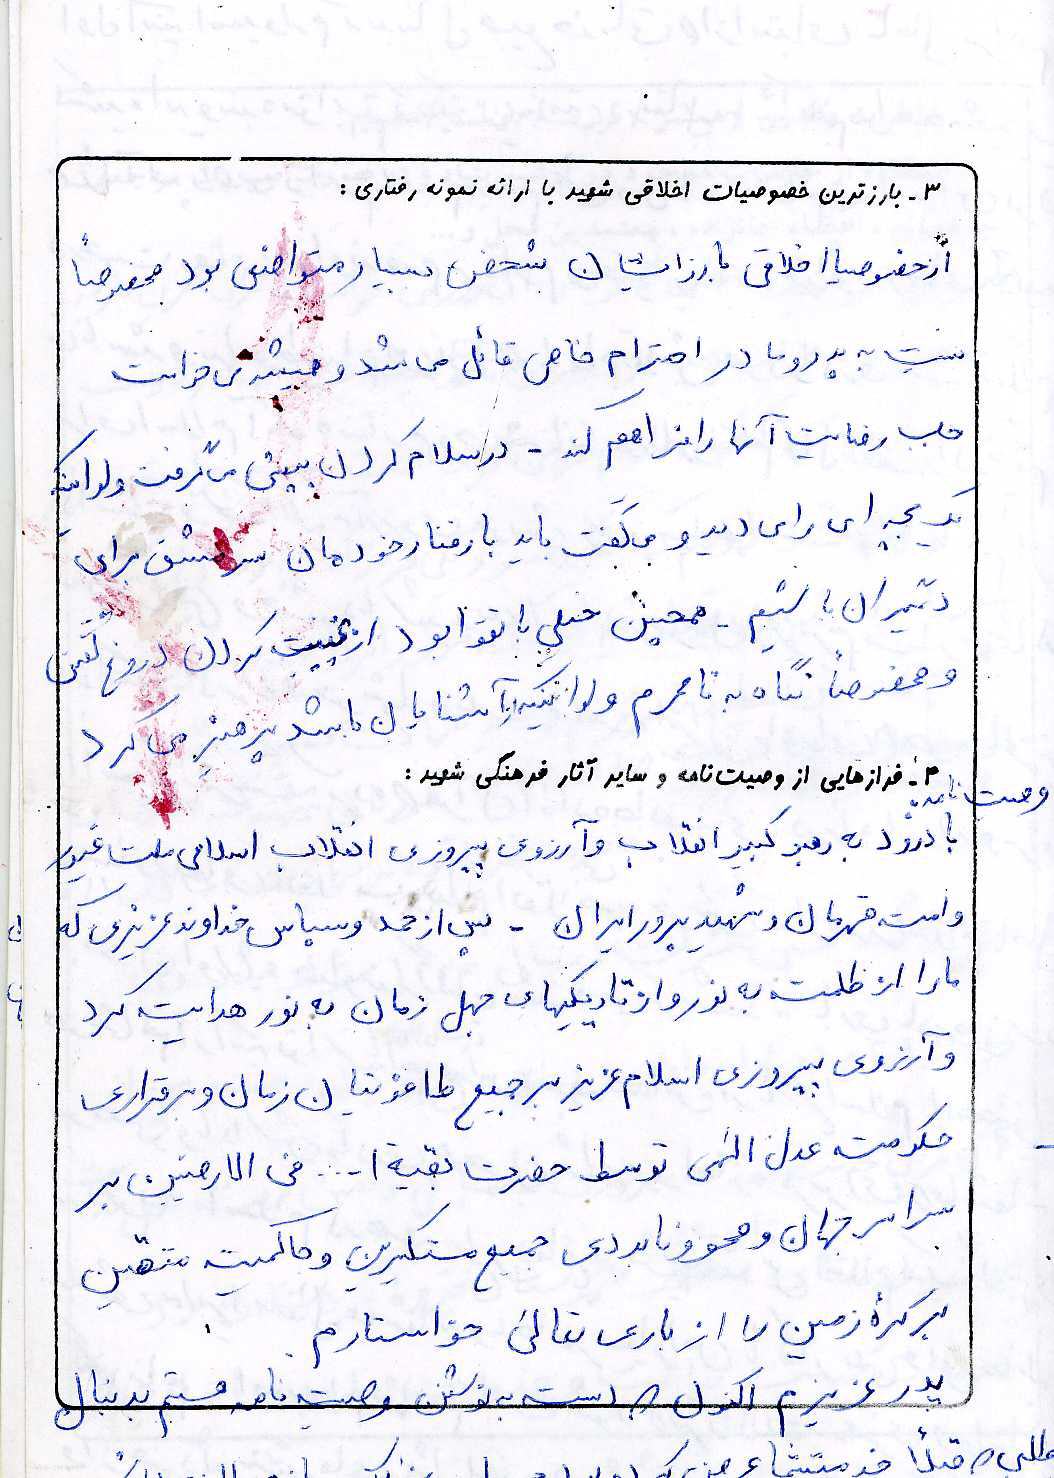 ۳ـ بارزترین خصوصیات اخلاقی شهید با ارائه نمونه رفتاری:
از خصوصیا اخلاقی بارز ایشان شخص بسیار متواضعی بود مخصوصاً
نسبت به پدر و مادر احترام خاصی قائل می شد و همیشه می خواست
جلب رضایت آنها را فراهم کند - در سلام کردن پیشی می گرفت ولو اینکه
یک بچه ای را می دید و می گفت باید با رفتار خودمان سرمشق برای
دیگران باشیم - همچنین خیلی با تقوا بود از غیبت کردن دروغ گفتن
و مخصوصاً نگاه به نامحرم ولو اینکه از آشنایان باشد پرهیز می کرد
۴ـ فرازهایی از وصیت‌نامه و سایر آثار فرهنگی شهید:
وصیت نامه:
با درود به رهبر کبیر انقلاب و آرزوی پیروزی انقلاب اسلامی ملت غیور
و امت قهرمان و شهید پرور ایران - پس از حمد و سپاس خداوند عزیزی که
ما را از ظلمت به نور و از تاریکیهای جهل زمان به نور هدایت کرد
و آرزوی پیروزی اسلام عزیز بر جمیع طاغوتیان زمان و برقراری
حکومت عدل الهی توسط حضرت بقیة ا... فی الارضین بر
سراسر جهان و محو و نابودی جمیع مستکبرین و حاکمیت متقین
بر کرهٔ زمین را از باری تعالی خواستارم
پدر عزیزم اکنون که دست به نوشتن وصیت نامه هستم بدنبال
قبلاً خدمت شما